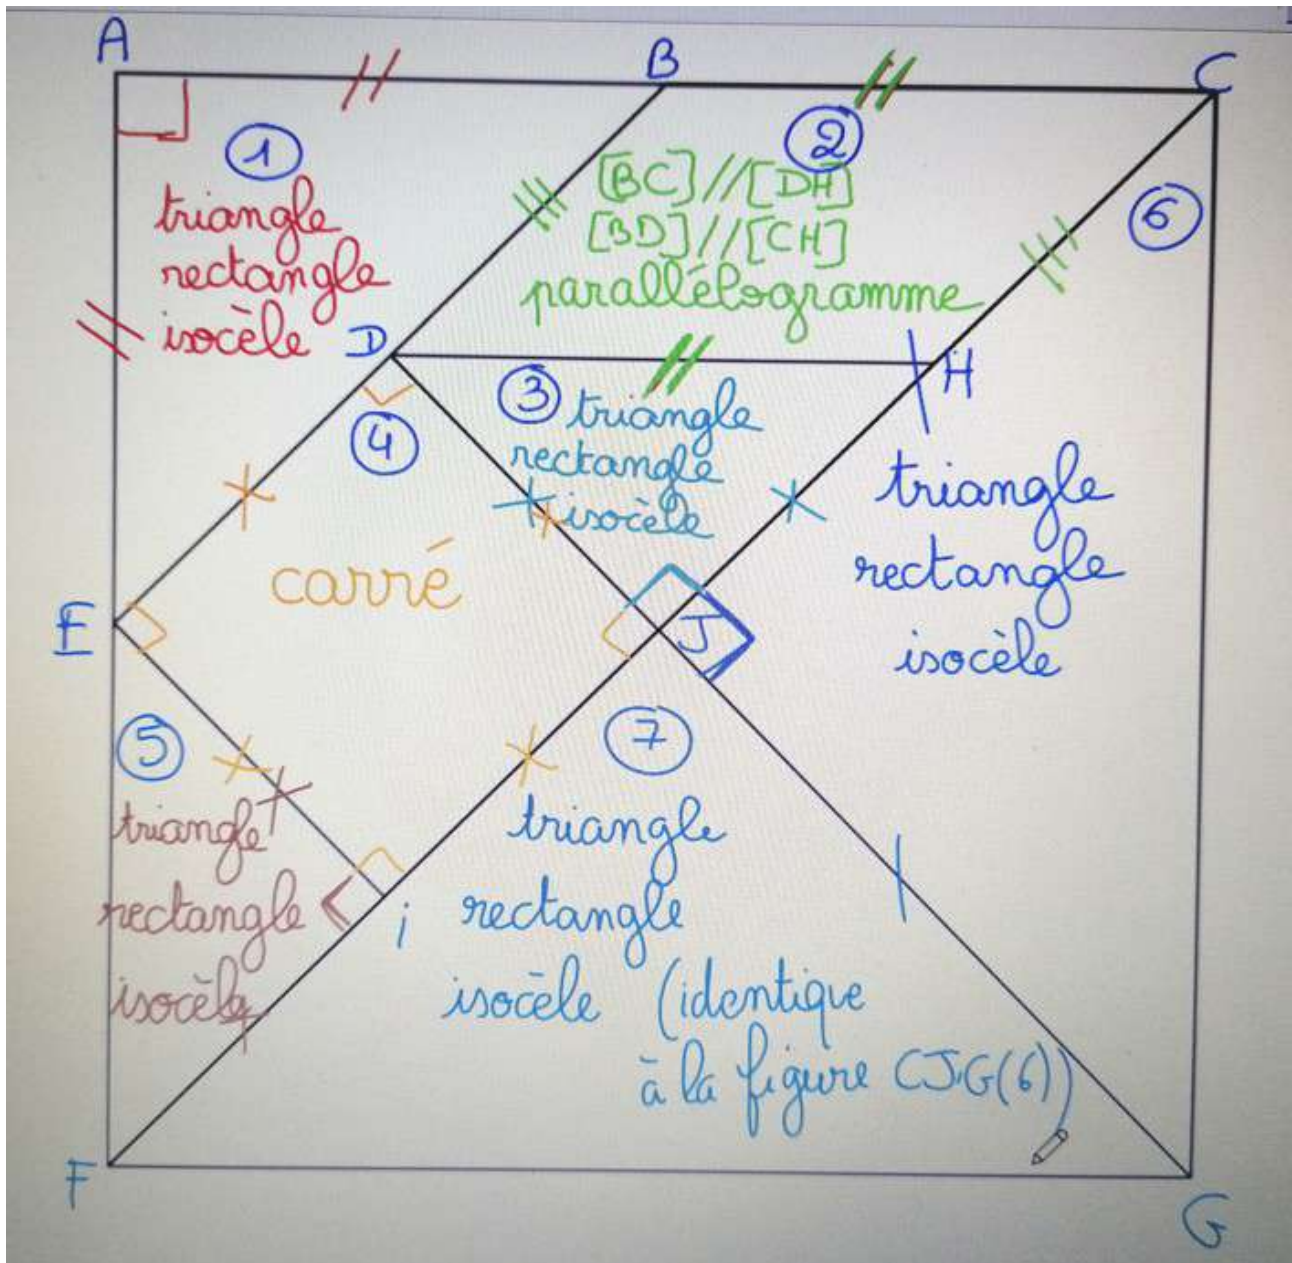 A
B
C
1
triangle
rectangle
isocèle
2
[BC]//[DH]
[BD]//[CH]
parallélogramme
6
D
H
3
triangle
rectangle
isocèle
4
carré
triangle
rectangle
isocèle
E
J
5
triangle
rectangle
isocèle
i
7
triangle
rectangle
isocèle (identique
à la figure CJG(6))
F
G